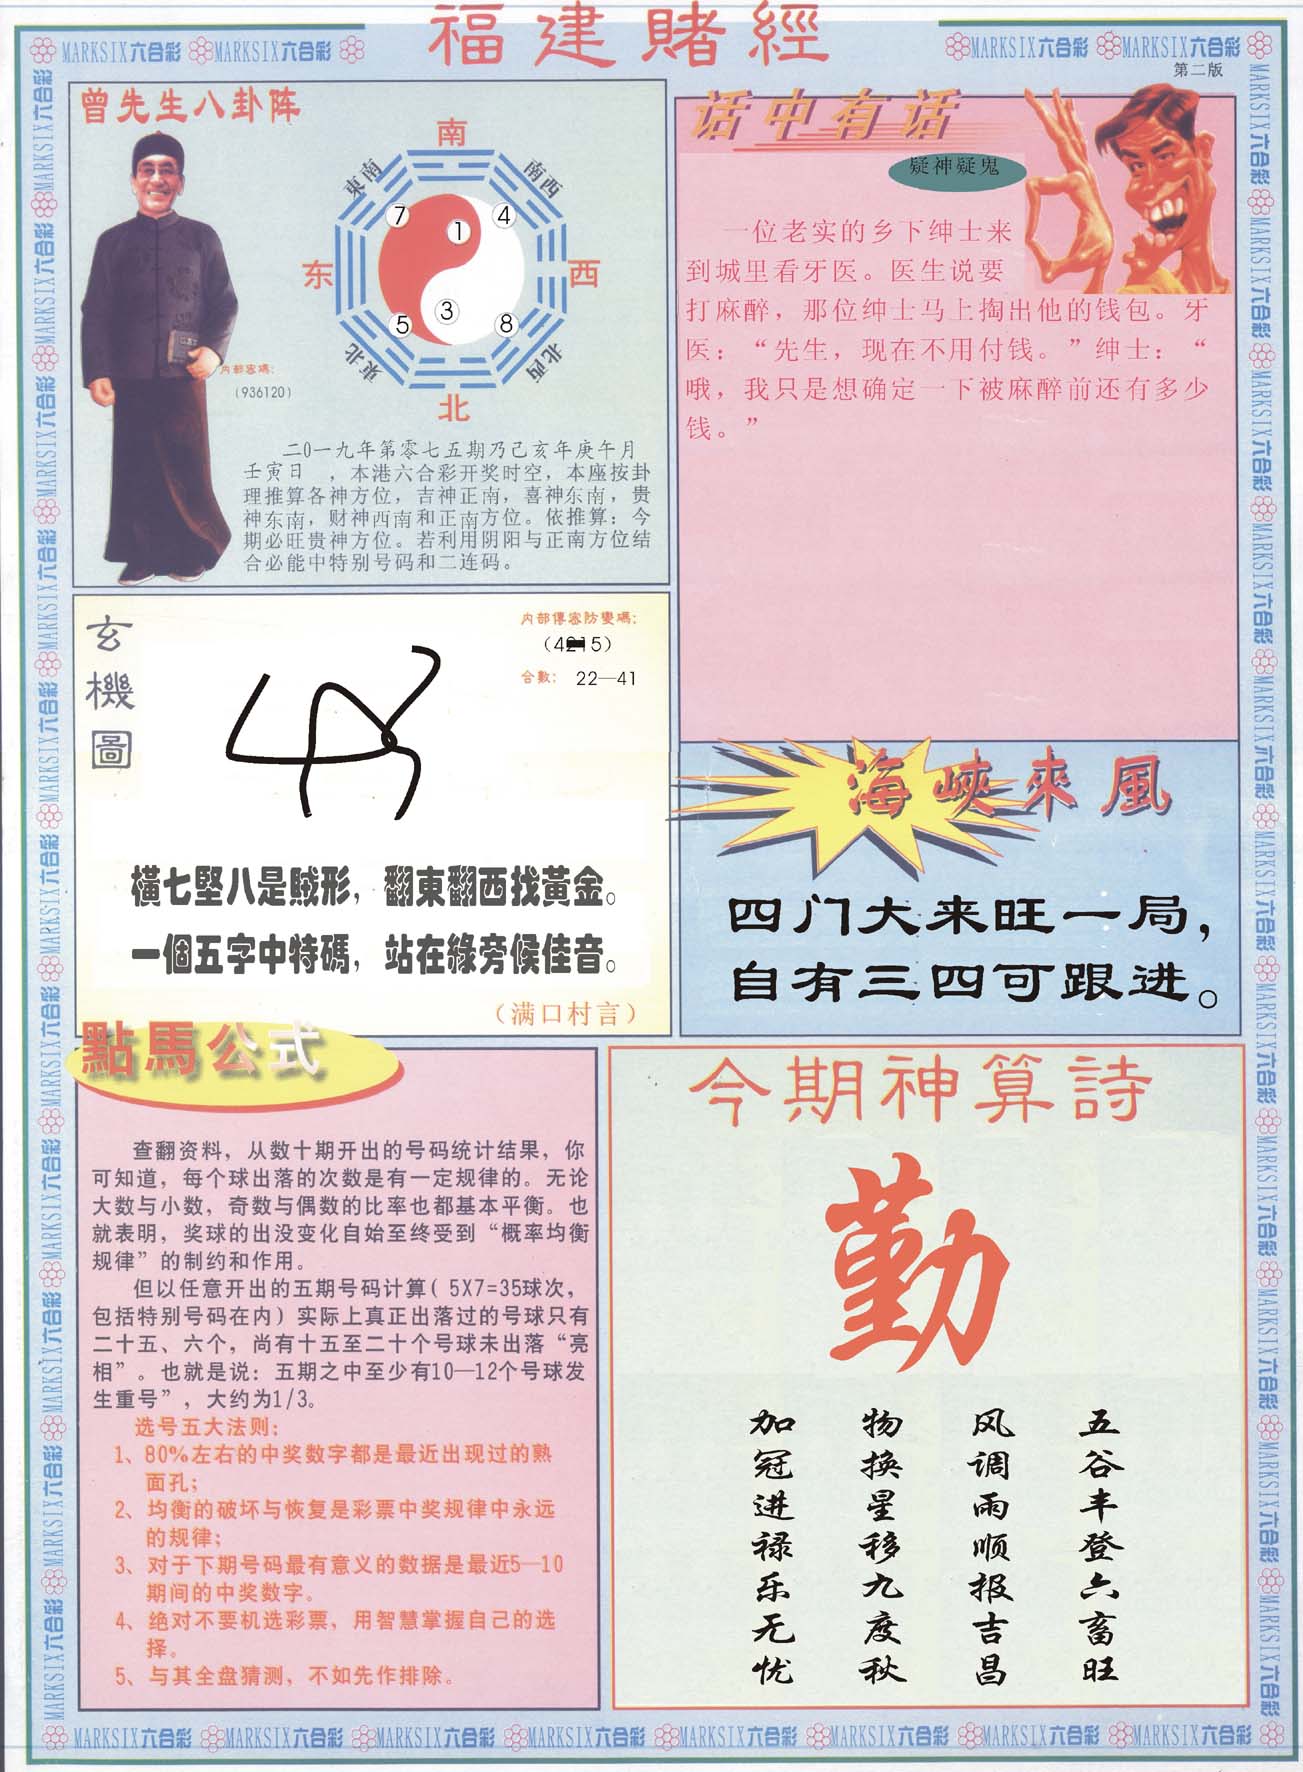 福建賭經
MARKSIX六合彩 MARKSIX六合彩
MARKSIX六合彩 MARKSIX六合彩
第二版
曾先生八卦阵
南
東南
南西
7
1
4
东
西
5
3
8
東北
北西
北
内部密碼：
（936120）
二0一九年第零七五期乃己亥年庚午月
壬寅日 ，本港六合彩开奖时空，本座按卦
理推算各神方位，吉神正南，喜神东南，贵
神东南，财神西南和正南方位。依推算：今
期必旺贵神方位。若利用阴阳与正南方位结
合必能中特别号码和二连码。
话中有话
疑神疑鬼
一位老实的乡下绅士来
到城里看牙医。医生说要
打麻醉，那位绅士马上掏出他的钱包。牙
医：“先生，现在不用付钱。”绅士：“
哦，我只是想确定一下被麻醉前还有多少
钱。”
玄機圖
内部傳密防變碼：
合數： 22—41
橫七堅八是賊形，翻東翻西找黃金。
一個五字中特碼，站在綠旁候佳音。
（满口村言）
海峽來風
四门大来旺一局，
自有三四可跟进。
點馬公式
查翻资料，从数十期开出的号码统计结果，你
可知道，每个球出落的次数是有一定规律的。无论
大数与小数，奇数与偶数的比率也都基本平衡。也
就表明，奖球的出没变化自始至终受到“概率均衡
规律”的制约和作用。
但以任意开出的五期号码计算( 5X7=35球次，
包括特别号码在内）实际上真正出落过的号球只有
二十五、六个，尚有十五至二十个号球未出落“亮
相”。也就是说：五期之中至少有10—12个号球发
生重号”，大约为1/3。
选号五大法则：
1、80%左右的中奖数字都是最近出现过的熟
面孔；
2、均衡的破坏与恢复是彩票中奖规律中永远
的规律；
3、对于下期号码最有意义的数据是最近5—10
期间的中奖数字。
4、绝对不要机选彩票，用智慧掌握自己的选
择。
5、与其全盘猜测，不如先作排除。
今期神算詩
勤
五谷丰登六畜旺
风调雨顺报吉昌
物换星移九度秋
加冠进禄乐无忧
MARKSIX六合彩 MARKSIX六合彩 MARKSIX六合彩 MARKSIX六合彩 MARKSIX六合彩 MARKSIX六合彩 MARKSIX六合彩 MARKSIX六合彩